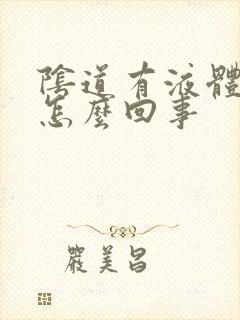 陰道有液體
怎麼回事
嚴美昌